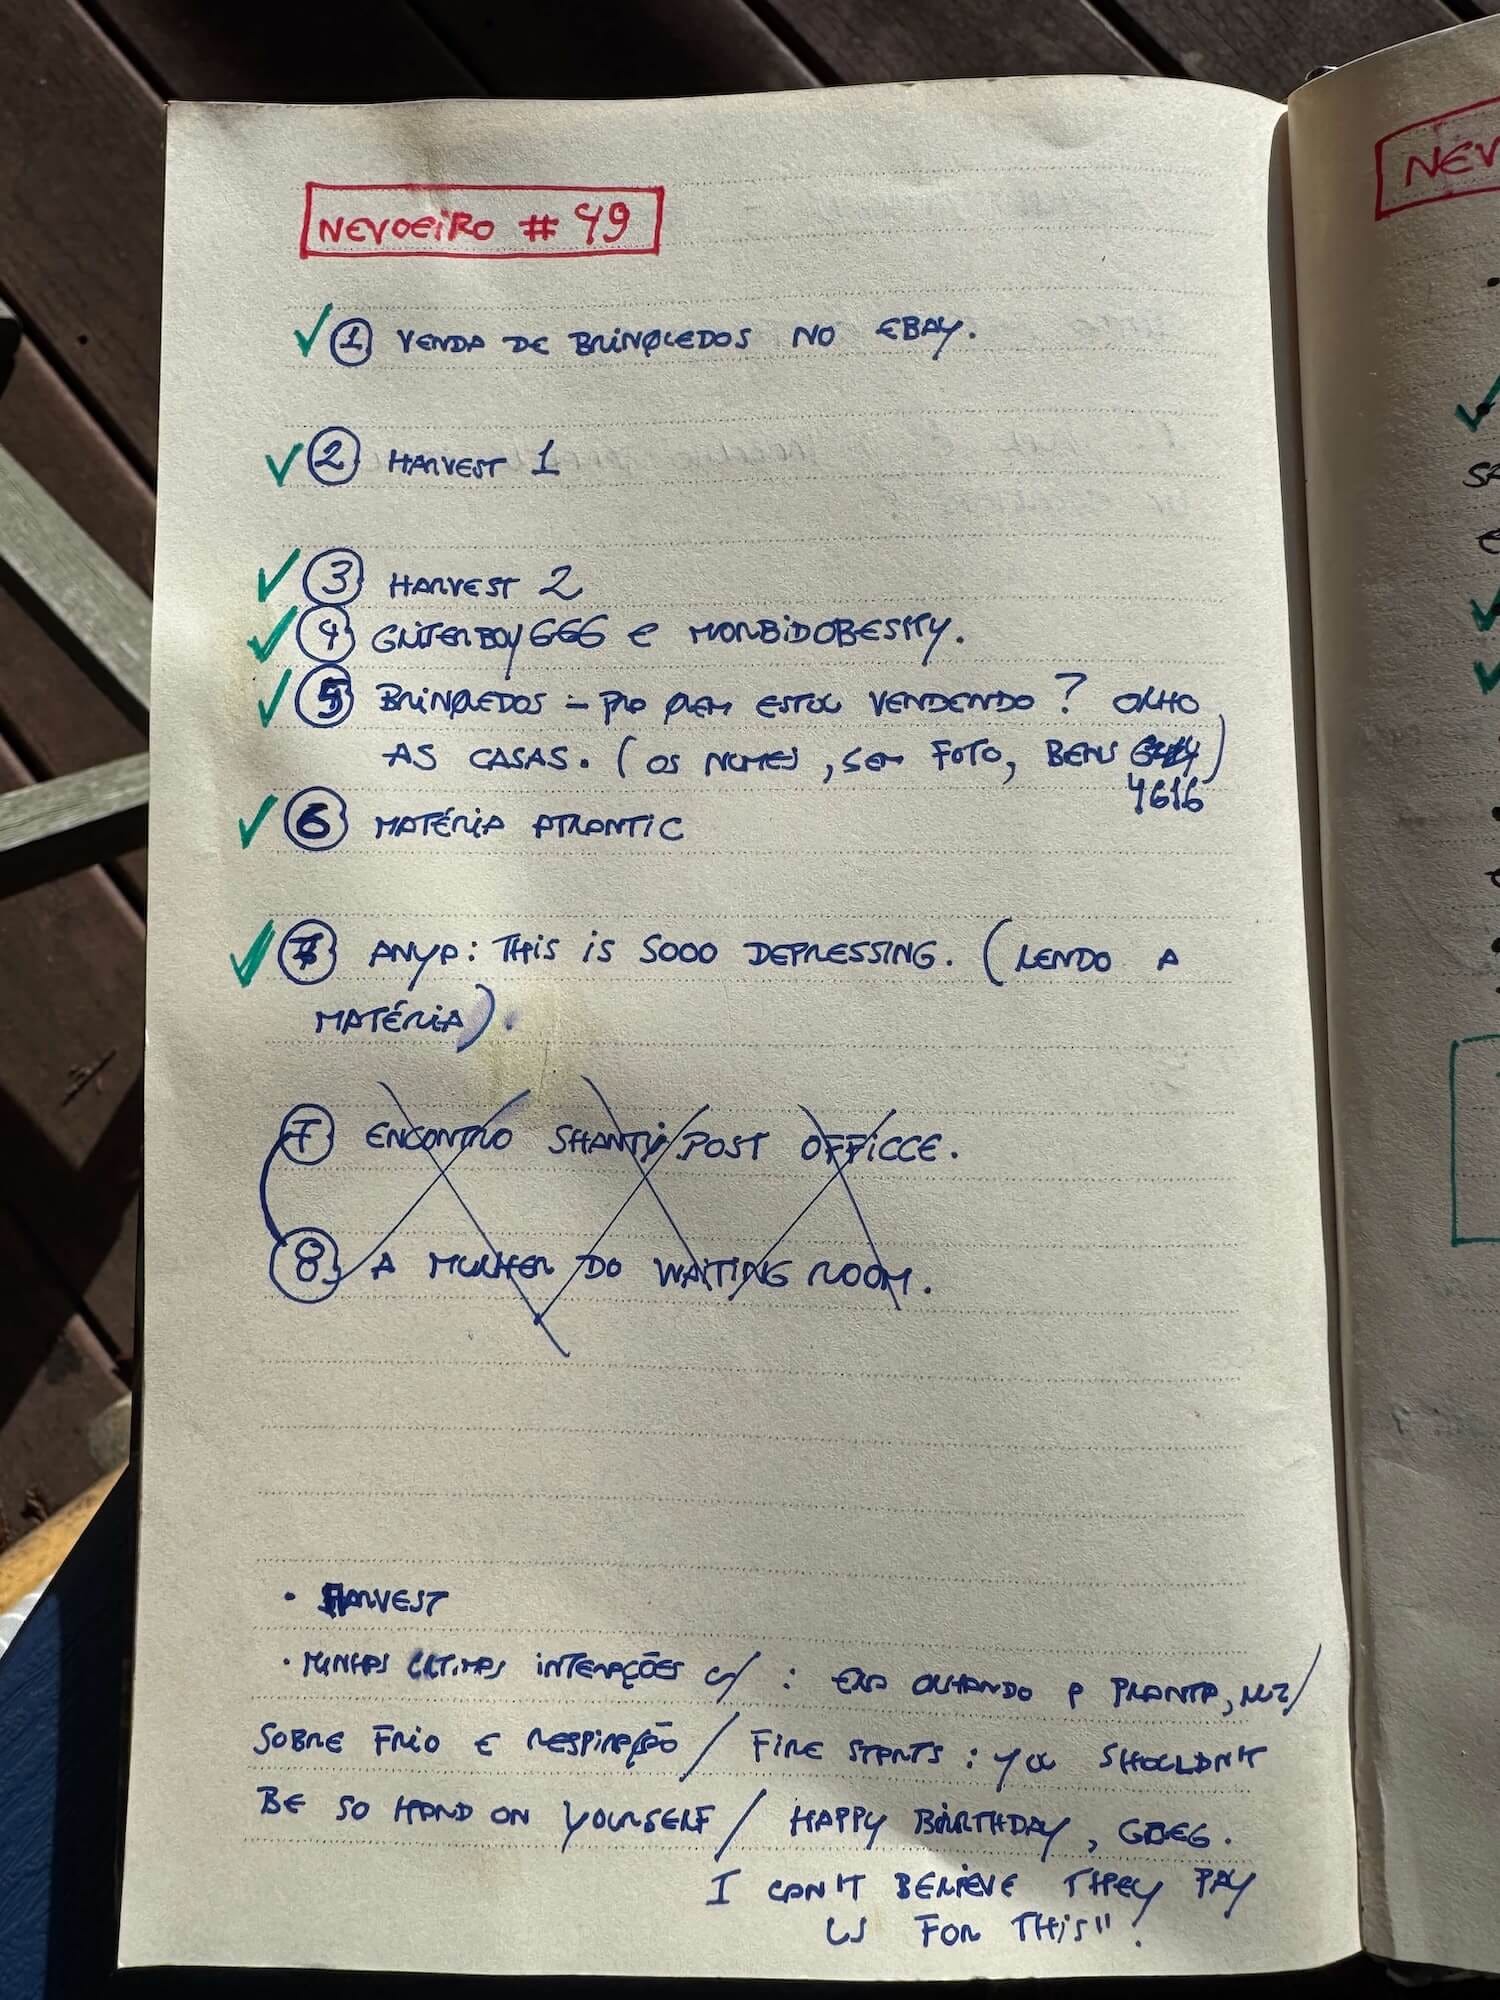 NEVOEIRO # 49
✓ ① VENDA DE BRINQUEDOS NO EBAY.
✓ ② HARVEST 1
✓ ③ HARVEST 2
✓ ④ GLITTERBOY666 E MORBIDOBESITY.
✓ ⑤ BRINQUEDOS - PRO QUEM ESTOU VENDENDO? OLHO
AS CASAS. (OS NOMES, SEM FOTO, BENS)
4616
✓ ⑥ MATÉRIA ATLANTIC
✓ ANYA: THIS IS SOOO DEPRESSING. (LENDO A
MATÉRIA).
⑦ ENCONTRO SHANTI/POST OFFICCE.
⑧ A MULHER DO WAITING ROOM.
• HARVEST
• MINHAS ULTIMAS INTERAÇÕES C/ : ELA OLHANDO A PLANTA, LUZ/
SOBRE FRIO E RESPIRAÇÃO / FIRE STARTS: YOU SHOULDN'T
BE SO HARD ON YOURSELF / HAPPY BIRTHDAY, GREG.
I CAN'T BELIEVE THEY PAY
US FOR THIS"!
NEV
SA
E